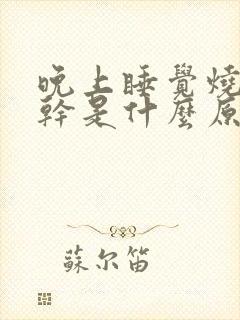 晚上睡覺燒
幹是什麼原
蘇尔笛